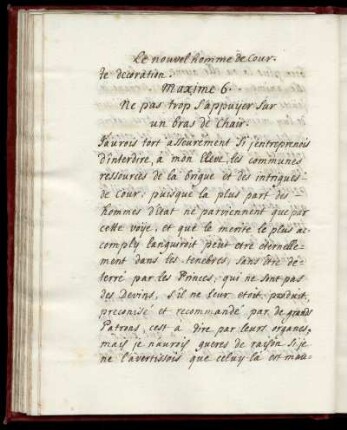 Le nouvel homme de Cour.
de decoration.
Maxime 6.
Ne pas trop s'appuyer sur
un bras de Chair.
J'aurois tort asseurement si j'entreprenois
d'interdire, a mon Eleve, les communes
ressources de la brigue et des intrigues
de Cour: puisque la plus part des
hommes d'etat ne parviennent que par
cette voye, et que le merite le plus ac-
comply languiroit peut etre eternelle-
ment dans les tenebres, sans etre de-
terré par les Princes, qui ne sont pas
des Devins, s'il ne leur etoit produit,
preconisé et recommandé par de grands
Patrons, c'est a dire par leurs organes,
mais je n'aurois gueres de raison si je
ne l'avertissois que celuy la est mau-